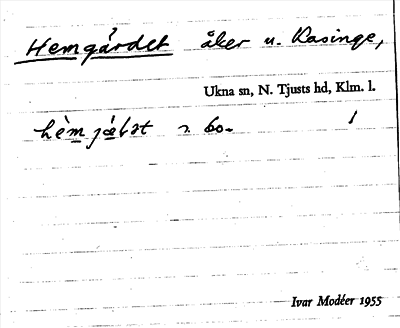 Hemgärdet åker u. Rasinge,
Ukna sn, N. Tjusts hd, Klm. l.
hèm
Ivar Modéer 1955